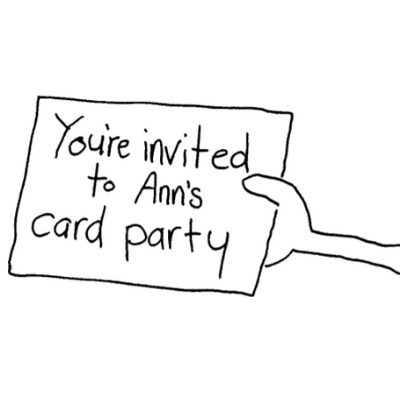 You're invited
to Ann's
card party